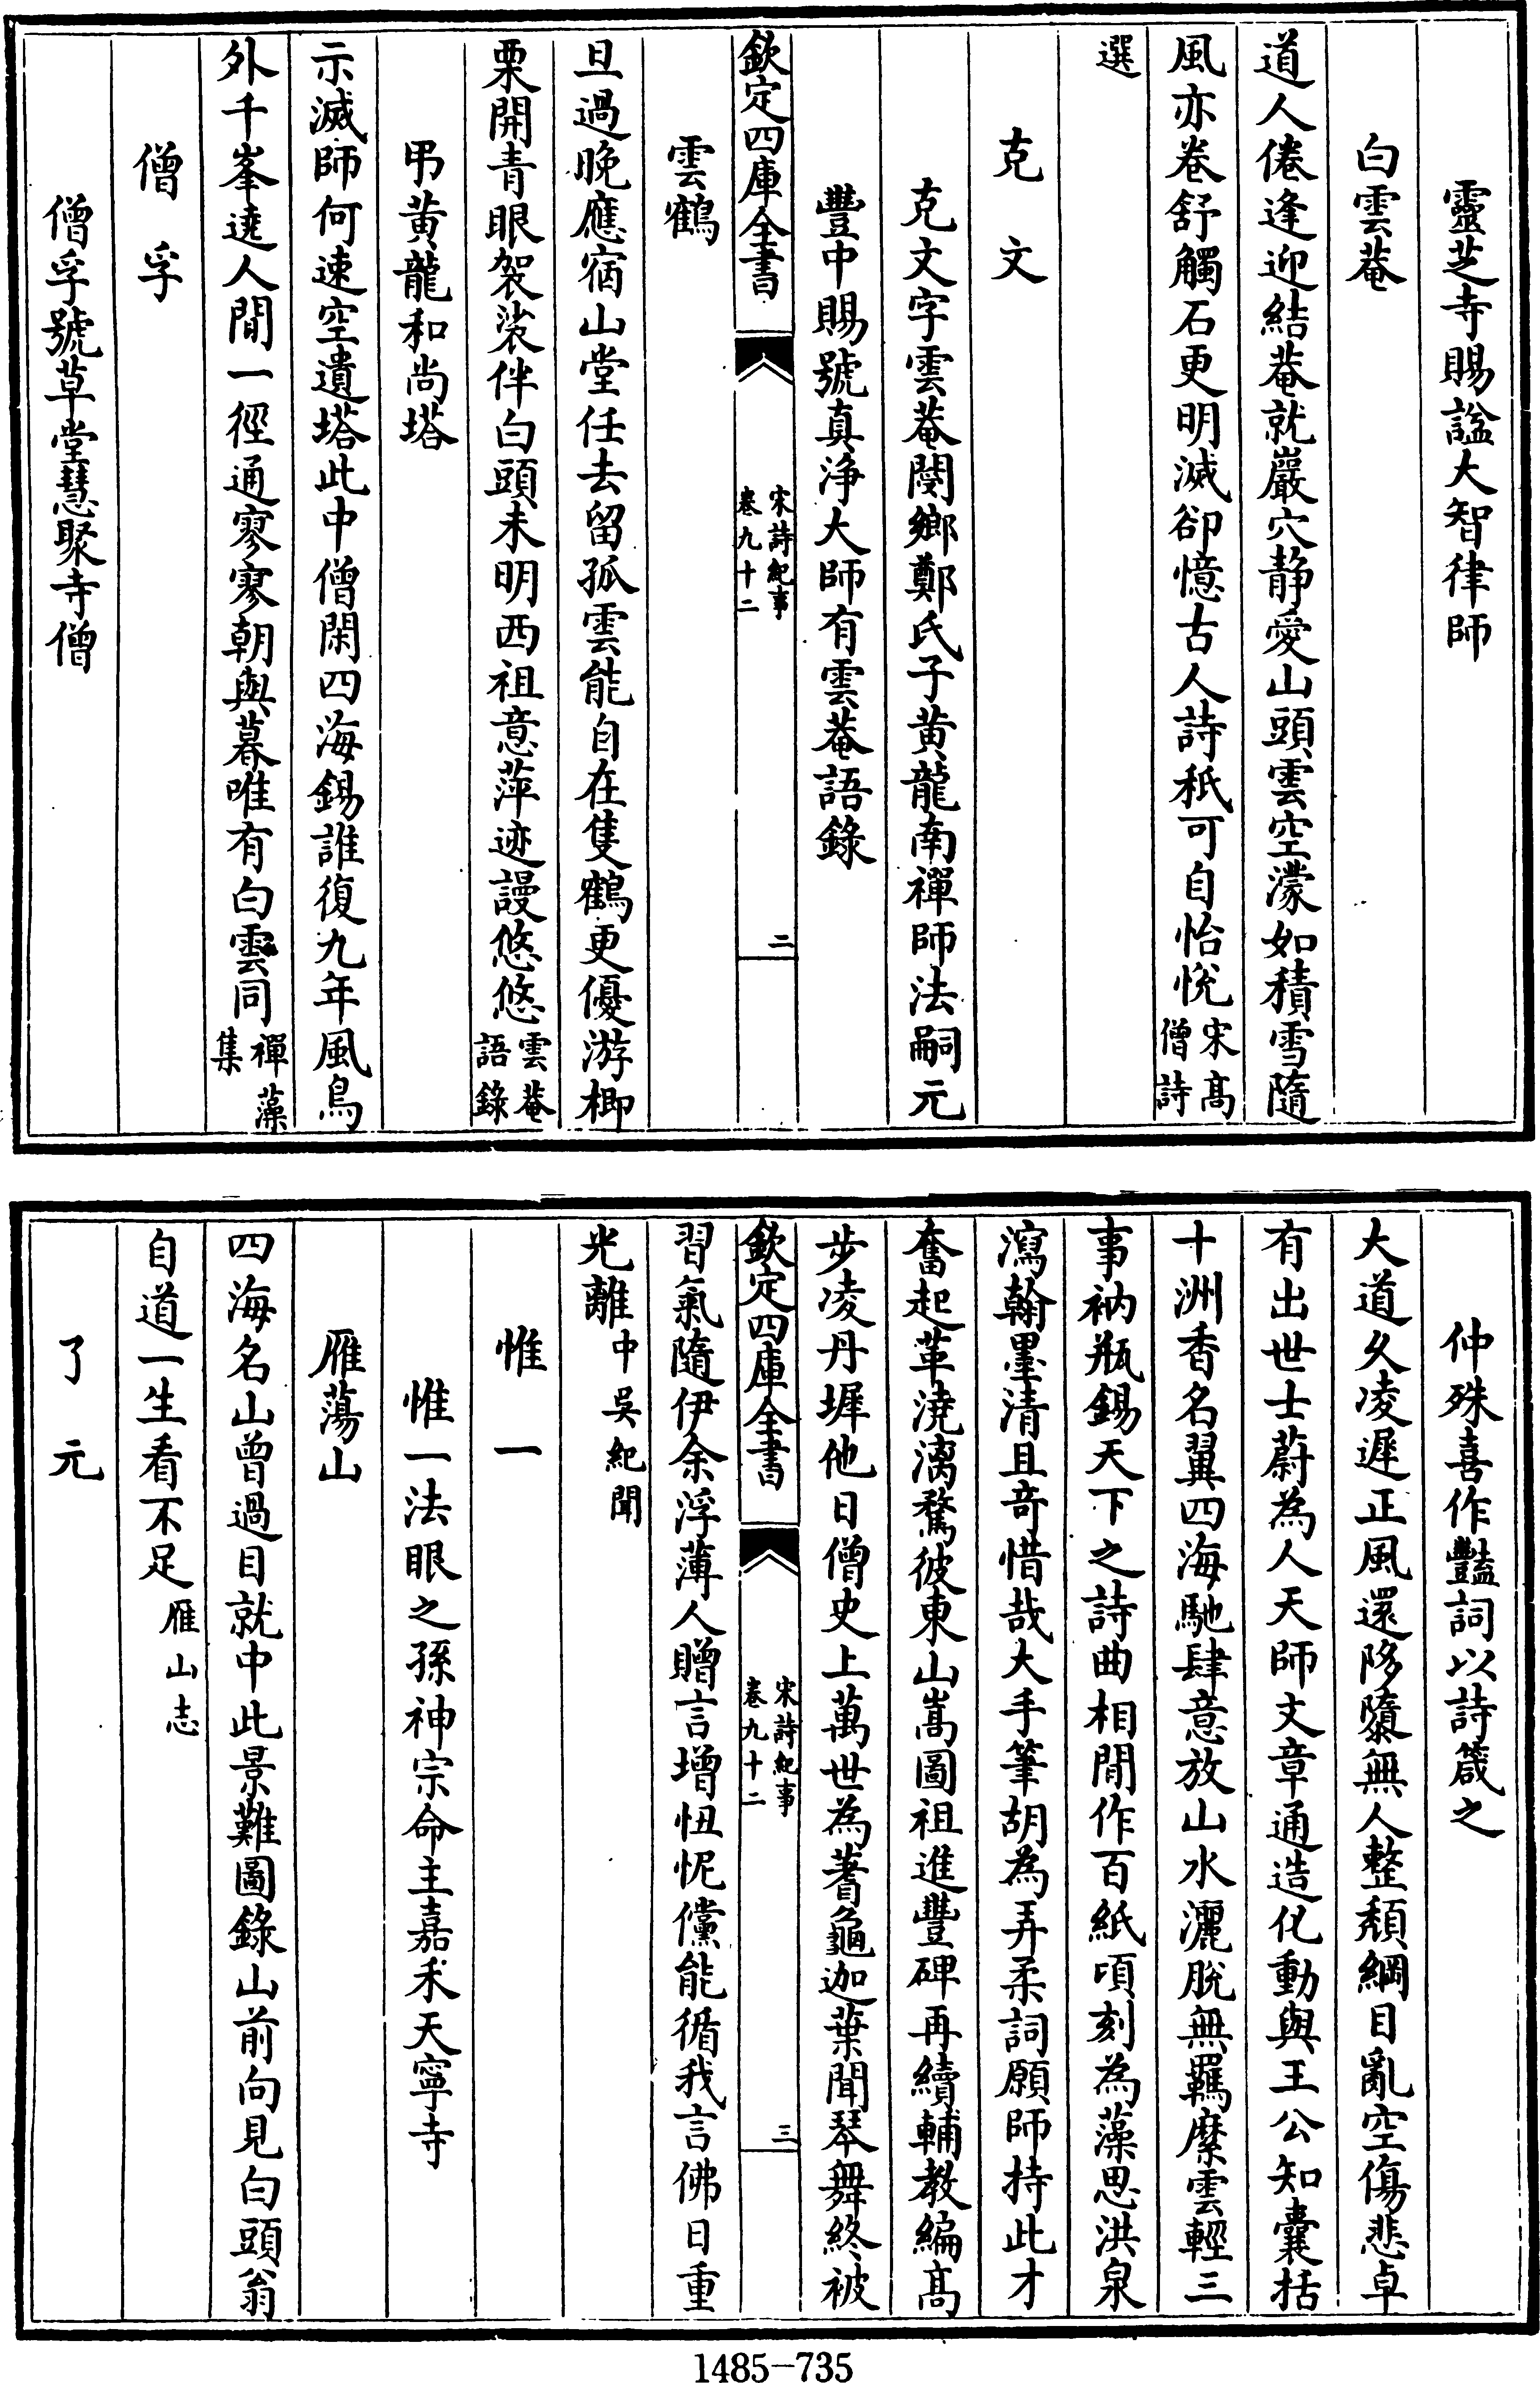 靈芝寺賜諡大智律師
白雲菴
道人倦逢迎結菴就巖穴静愛山頭雲空濛如積雪隨
風亦卷舒觸石更明滅卻憶古人詩秖可自怡悅宋髙僧詩
選
克文
克文字雲菴閿鄉鄭氏子黄龍南禪師法嗣元
豐中賜號真淨大師有雲菴語錄
欽定四庫全書
宋詩紀事
卷九十二
二
雲鶴
旦過晚應宿山堂任去留孤雲能自在隻鶴更優游楖
栗開青眼袈裟伴白頭未明西祖意萍迹謾悠悠雲菴語錄
弔黄龍和尚塔
示滅師何速空遺塔此中僧閑四海錫誰復九年風鳥
外千峯遶人間一徑通寥寥朝與暮唯有白雲同禪藻集
僧孚
僧孚號草堂慧聚寺僧
仲殊喜作豔詞以詩箴之
大道久凌遲正風還陊隳無人整頽綱目亂空傷悲卓
有出世士蔚為人天師文章通造化動與王公知囊括
十洲香名翼四海馳肆意放山水灑脫無羈縻雲輕三
事衲瓶錫天下之詩曲相間作百紙頃刻為藻思洪泉
瀉翰墨清且竒惜哉大手筆胡為弄柔詞願師持此才
奮起革澆漓驚彼東山嵩圖祖進豐碑再續輔教編髙
步凌丹墀他日僧史上萬世為蓍龜迦葉聞琴舞終被
欽定四庫全書
宋詩紀事
卷九十二
三
習氣隨伊余浮薄人贈言增忸怩儻能循我言佛日重
光離中吳紀聞
惟一
惟一法眼之孫神宗命主嘉禾天寧寺
雁蕩山
四海名山曾過目就中此景難圖錄山前向見白頭翁
自道一生看不足雁山志
了元
1485-735